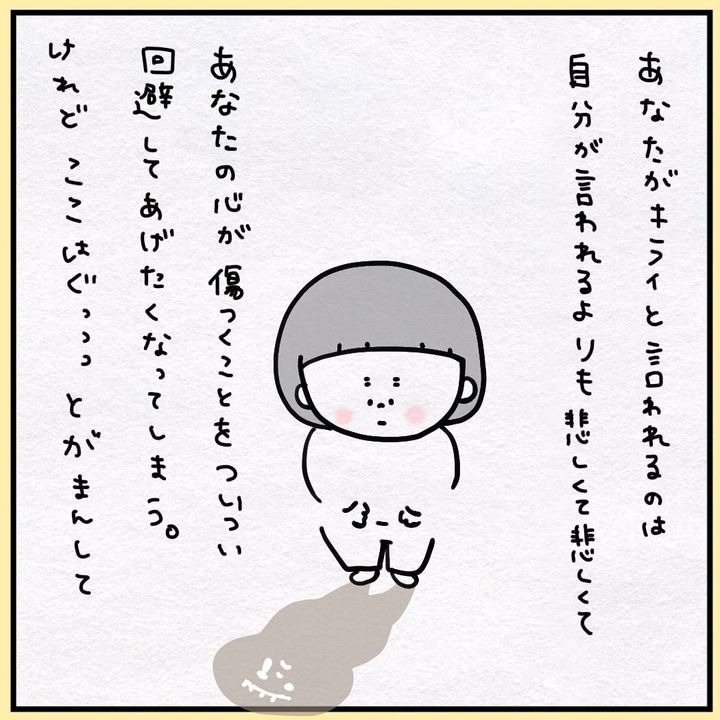 あなたがキライと言われるのは
自分が言われるよりも悲しくて悲しくて
あなたの心が傷つくことをついつい
回避してあげたくなってしまう。
けれどここはぐっっっとがまんして